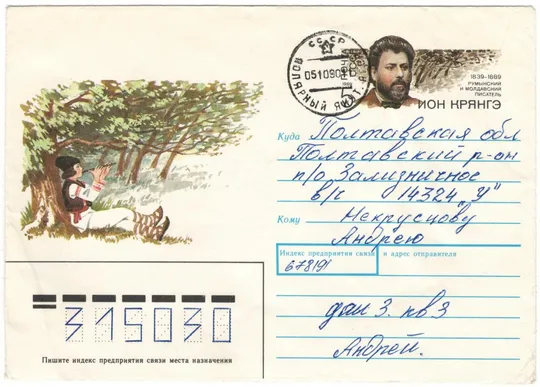 СССР
05109018
ПОЛЯРНЫЙ ЯКУТ.
ПОЧТА
5
1839-1889
РУМЫНСКИЙ
И МОЛДАВСКИЙ
ПИСАТЕЛЬ
ИОН КРЯНГЭ
Куда Полтавская обл
Полтавский р-он
п/о Зализничное
в/ч 14324 „У"
Кому Некрусцову
Андрею
Индекс предприятия связи и адрес отправителя
678191
дом 3. кв 3
Андрей.
315030
Пишите индекс предприятия связи места назначения